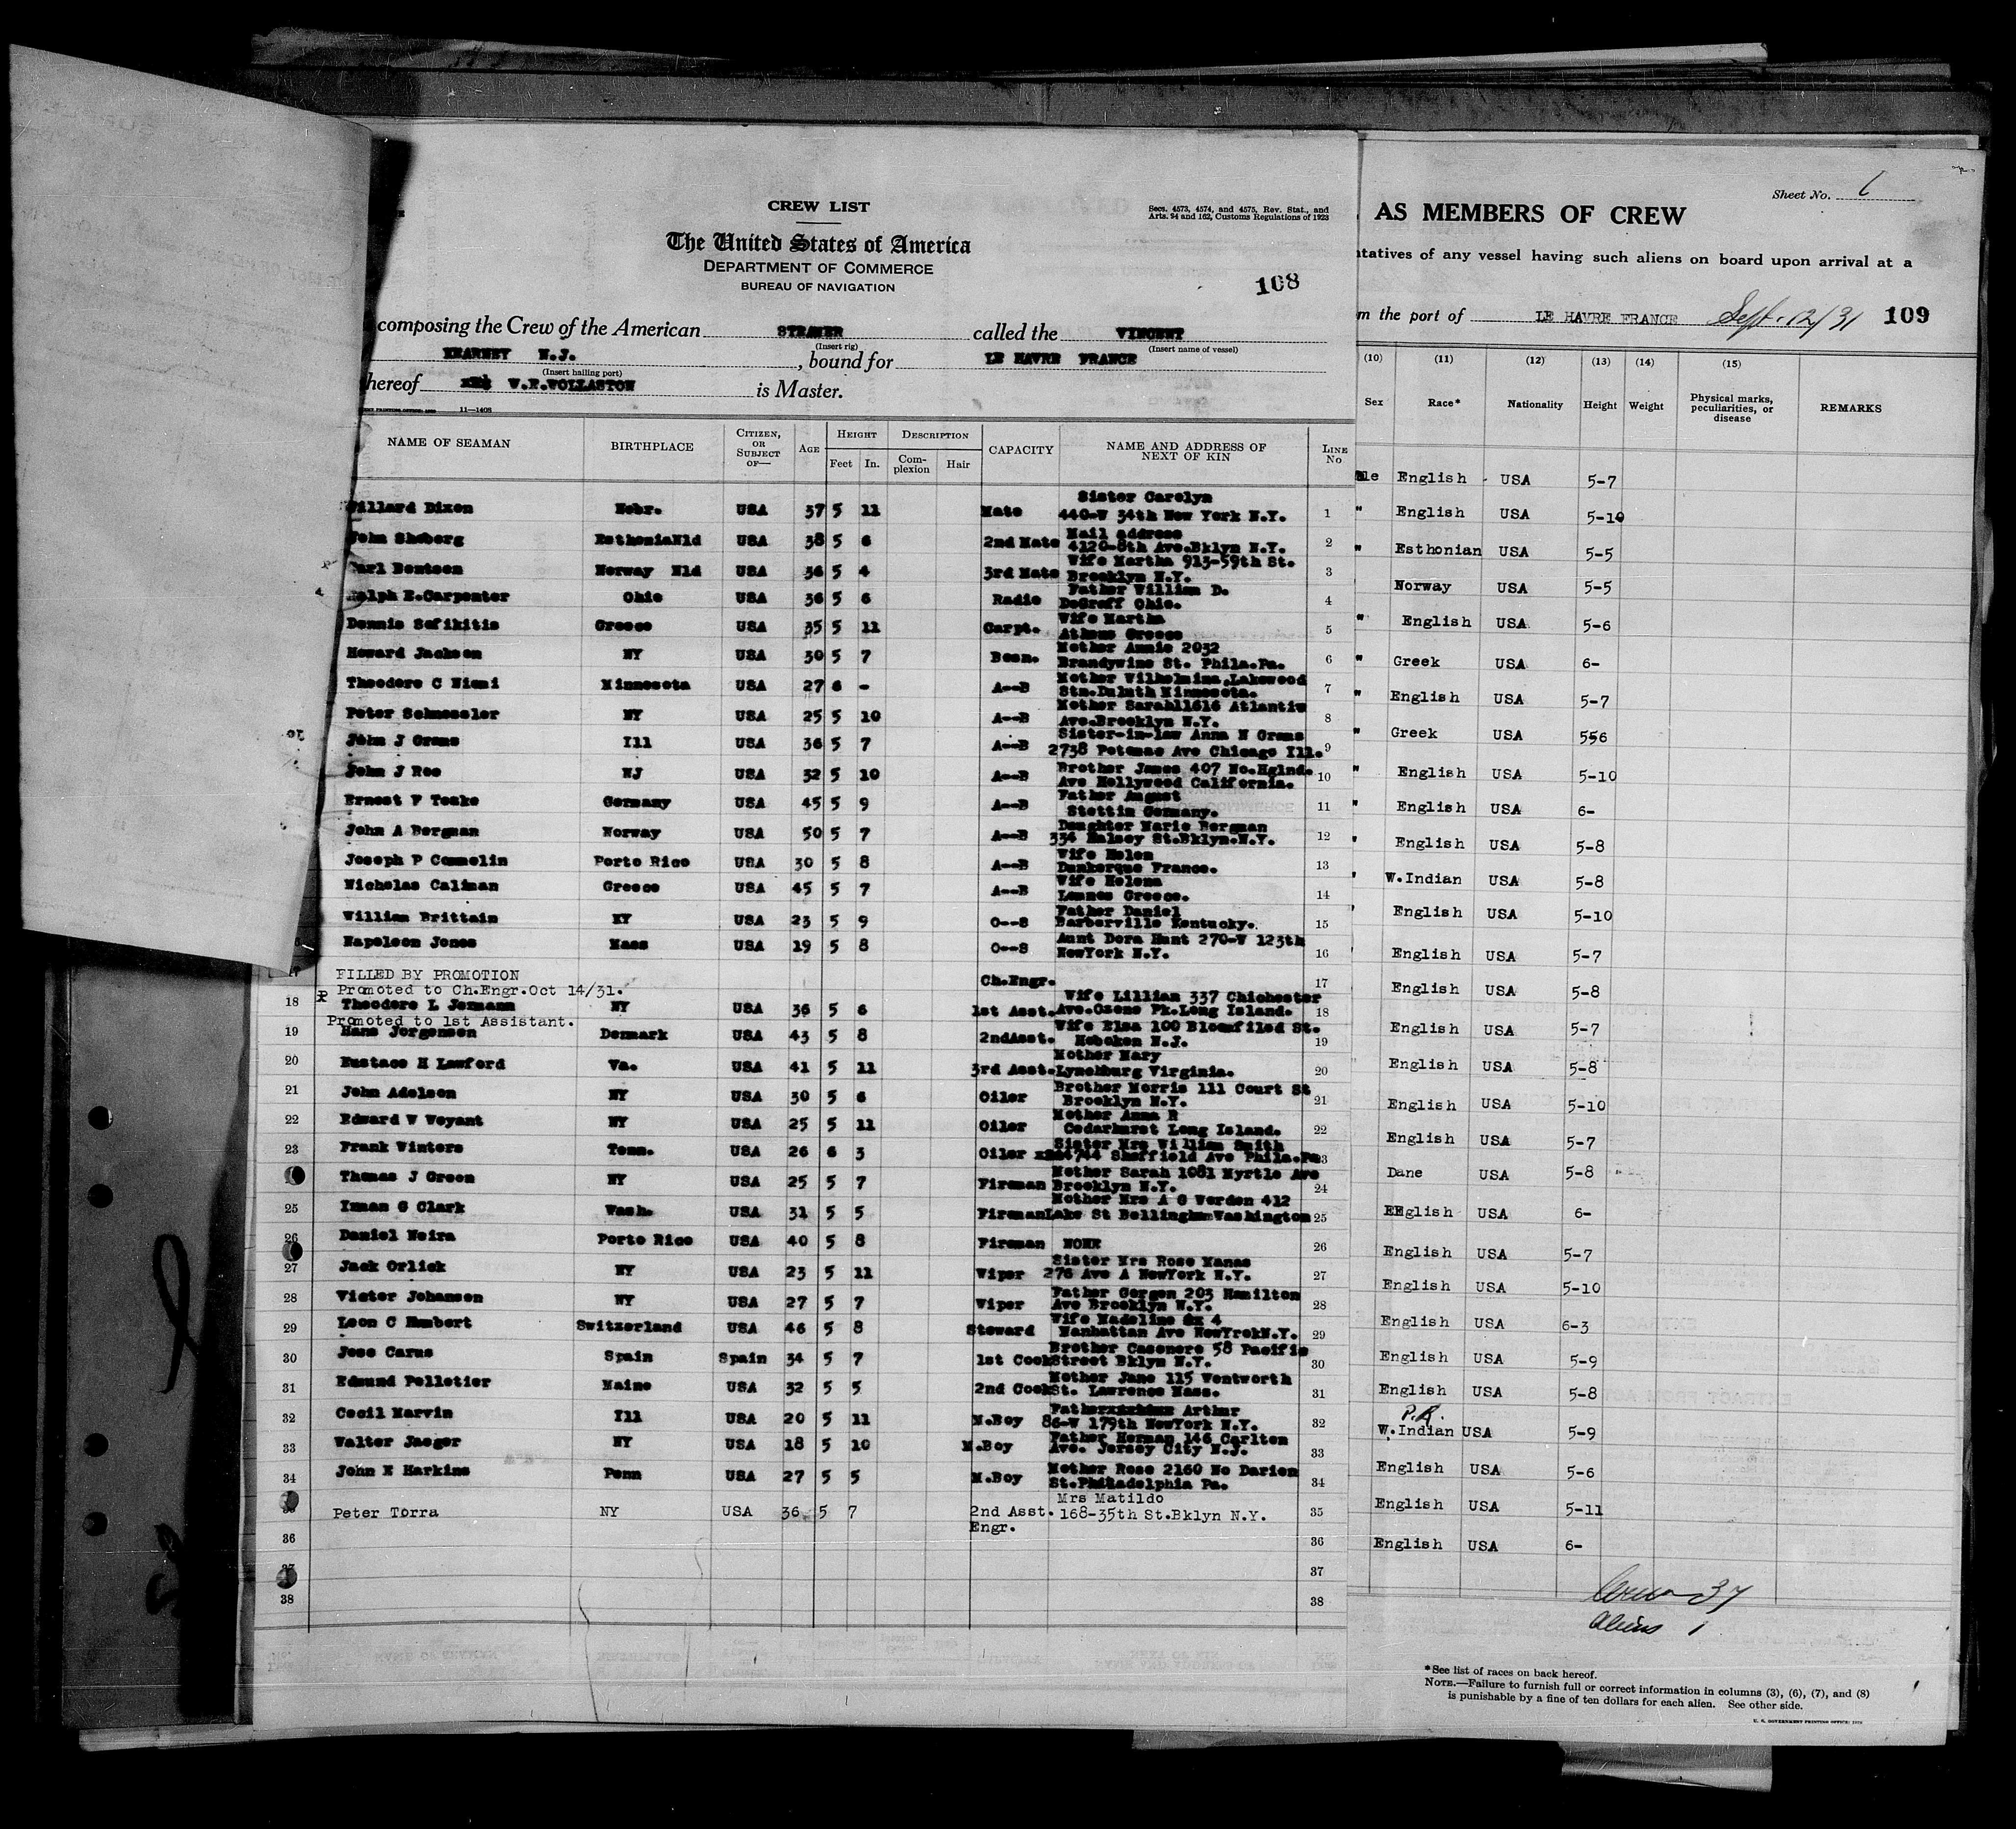 CREW LIST
Secs. 4573, 4574, and 4575, Rev. Stat., and
Arts. 94 and 162, Customs Regulations of 1923
The United States of America
DEPARTMENT OF COMMERCE
BUREAU OF NAVIGATION
108
composing the Crew of the American STEAMER called the VINCENT
(Insert rig) (Insert name of vessel)
KEARNEY N.J. , bound for LE HAVRE FRANCE
(Insert hailing port)
hereof W.F.WOLLASTON is Master.
11—1408
NAME OF SEAMAN BIRTHPLACE CITIZEN, OR SUBJECT OF— AGE HEIGHT Feet In. DESCRIPTION Complexion Hair CAPACITY NAME AND ADDRESS OF NEXT OF KIN LINE No
Sister Carolyn
Willard Dixon Nebr. USA 37 5 11 Mate 440-W 34th New York N.Y. 1
Mail address
John Shoberg EsthoniaNld USA 38 5 6 2nd Mate 4120-8th Ave.Bklyn N.Y. 2
Wife Martha 913-59th St.
Carl Bentsen Norway Nld USA 36 5 4 3rd Mate Brooklyn N.Y. 3
Father William D.
Ralph E.Carpenter Ohio USA 36 5 6 Radio DeGraff Ohio. 4
Wife Martha
Dennis Sefikitis Greece USA 35 5 11 Carpt. Athens Greece 5
Mother Annie 2032
Howard Jackson NY USA 30 5 7 Bosn. Brandywine St. Phila.Pa. 6
Mother Wilhelmina,Lakewood
Theodore C Niemi Minnesota USA 27 6 - A--B Stn.Duluth Minnesota. 7
Mother Sarah11616 Atlantiv
Peter Schnessler NY USA 25 5 10 A--B Ave.Brooklyn N.Y. 8
Sister-in-law Anna N Grams
John J Grams Ill USA 36 5 7 A--B 2738 Potomac Ave Chicago Ill. 9
Brother James 407 No.Hglnd.
John J Roe NJ USA 32 5 10 A--B Ave Hollywood California. 10
Father August
Ernest F Teske Germany USA 45 5 9 A--B Stettin Germany. 11
Daughter Marie Bergman
John A Bergman Norway USA 50 5 7 A--B 334 Halsey St.Bklyn.N.Y. 12
Wife Helen
Joseph P Commelin Porto Rico USA 30 5 8 A--B Dunkerque France. 13
Wife Helena
Nicholas Caliman Greece USA 45 5 7 A--B Lemnos Greece. 14
Father Daniel
William Brittain KY USA 23 5 9 O--S Barberville Kentucky. 15
Aunt Dora Hunt 270-W 123th
Napoleon Jones Mass USA 19 5 8 O--S NewYork N.Y. 16
FILLED BY PROMOTION Ch.Engr. 17
Promoted to Ch.Engr.Oct 14/31.
Wife Lillian 337 Chichester
18 Theodore L Jermann NY USA 36 5 6 1st Asst. Ave.Ozone Pk.Long Island. 18
Promoted to 1st Assistant.
Wife Elsa 100 Bloomfiled St.
19 Hans Jorgensen Denmark USA 43 5 8 2ndAsst. Hoboken N.J. 19
Mother Mary
20 Eustace H Lawford Va. USA 41 5 11 3rd Asst. Lynchburg Virginia. 20
Brother Morris 111 Court St
21 John Adelson NY USA 30 5 6 Oiler Brooklyn N.Y. 21
Mother Anna R
22 Edward V Weyant NY USA 25 5 11 Oiler Cedarhurst Long Island. 22
Sister Mrs William Smith
23 Frank Winters Tenn. USA 26 6 3 Oiler 4744 Sheffield Ave Phila.Pa 23
Mother Sarah 1081 Myrtle Ave
Thomas J Green NY USA 25 5 7 Fireman Brooklyn N.Y. 24
Mother Mrs A G Verden 412
25 Inman G Clark Wash. USA 31 5 5 Fireman Lake St Bellingham Washington 25
26 Daniel Neira Porto Rico USA 40 5 8 Fireman NONE 26
Sister Mrs Rose Manas
27 Jack Orlick NY USA 23 5 11 Wiper 276 Ave A NewYork N.Y. 27
Father Gergen 203 Hamilton
28 Victor Johansen NY USA 27 5 7 Wiper Ave Brooklyn N.Y. 28
Wife Madeline 4
29 Leon C Humbert Switzerland USA 46 5 8 Steward Manhattan Ave NewYrokN.Y. 29
Brother Casenere 58 Pacific
30 Jose Carus Spain Spain 34 5 7 1st Cook Street Bklyn N.Y. 30
Mother Jane 115 Wentworth
31 Edmund Pelletier Maine USA 32 5 5 2nd Cook St. Lawrence Mass. 31
Father Arthur
32 Cecil Marvin Ill USA 20 5 11 M.Boy 86-W 179th NewYork N.Y. 32
Father Herman 146 Carlton
33 Walter Jaeger NY USA 18 5 10 M.Boy Ave. Jersey City N.J. 33
Mother Rose 2160 No Darien
34 John E Harkins Penn USA 27 5 5 M.Boy St.Philadelphia Pa. 34
Mrs Matildo
Peter Torra NY USA 36 5 7 2nd Asst. 168-35th St.Bklyn N.Y. 35
Engr.
36 36
37 37
38 38
Sheet No. 6
AS MEMBERS OF CREW
ntatives of any vessel having such aliens on board upon arrival at a
m the port of LE HAVRE FRANCE Sept. 12/31 109
(10) (11) (12) (13) (14) (15)
Sex Race* Nationality Height Weight Physical marks, peculiarities, or disease REMARKS
le English USA 5-7
" English USA 5-10
" Esthonian USA 5-5
Norway USA 5-5
" English USA 5-6
" Greek USA 6-
" English USA 5-7
" Greek USA 556
" English USA 5-10
" English USA 6-
" English USA 5-8
" W.Indian USA 5-8
" English USA 5-10
" English USA 5-7
English USA 5-8
English USA 5-7
English USA 5-8
English USA 5-10
English USA 5-7
Dane USA 5-8
EEglish USA 6-
English USA 5-7
English USA 5-10
English USA 6-3
English USA 5-9
English USA 5-8
P.R.
W.Indian USA 5-9
English USA 5-6
English USA 5-11
English USA 6-
Crew 37
Aliens 1
*See list of races on back hereof.
NOTE.—Failure to furnish full or correct information in columns (3), (6), (7), and (8)
is punishable by a fine of ten dollars for each alien. See other side.
U. S. GOVERNMENT PRINTING OFFICE